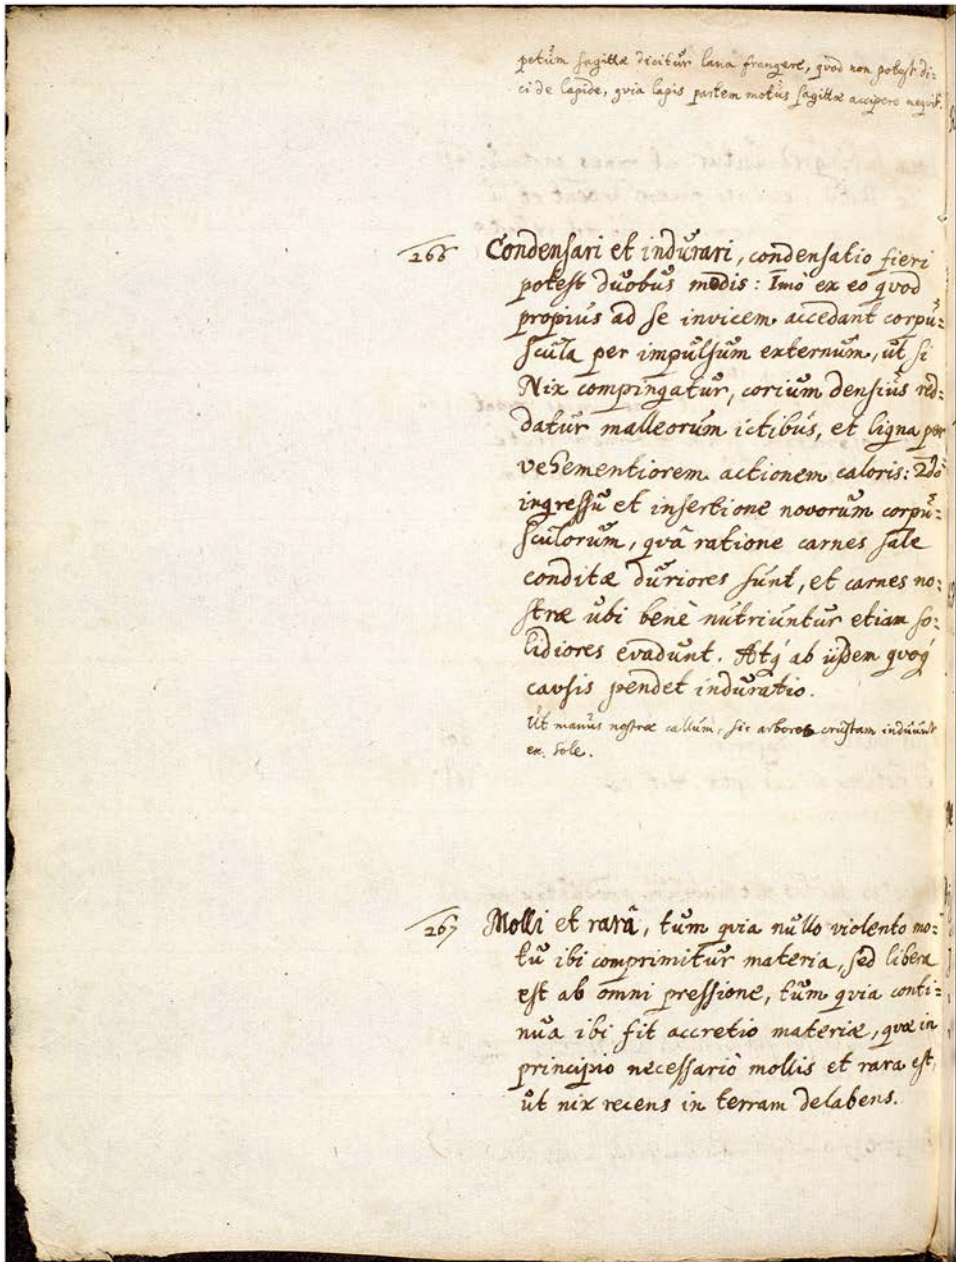 petum sagittæ dicitur lana frangere, qvod non potest di:
ci de lapide, qvia lapis partem motus sagittæ accipere neqvit.
266 Condensari et indurari, condensatio fieri
potest duobus modis: Imò ex eo qvod
propius ad se invicem accedant corpu:
scula per impulsum externum, ut si
Nix compingatur, corium densius red:
datur malleorum ictibus, et ligna per
vehementiorem actionem caloris: 2do
ingressu et insertione novorum corpu:
sculorum, qvâ ratione carnes sale
conditæ duriores sunt, et carnes no:
stræ ubi benè nutriuntur etiam so:
lidiores evadunt. Atq́ ab ijsdem qvoq́
causis pendet induratio.
Ut manus nostræ callum, sic arbores crustam induunt
ex. sole.
267 Molli et rarâ, tum qvia nullo violento mo:
tu ibi comprimitur materia, sed libera
est ab omni pressione, tum qvia conti:
nua ibi fit accretio materiæ, qvæ in
principio necessariò mollis et rara est,
ut nix recens in terram delabens.